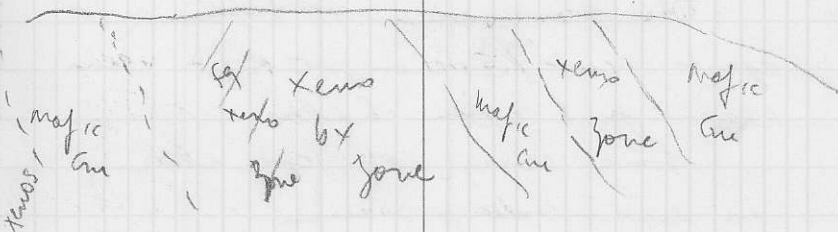 xenos
Mafic
xeno
zone
Xeno
bx
zone
Mafic
xeno
zone
Mafic